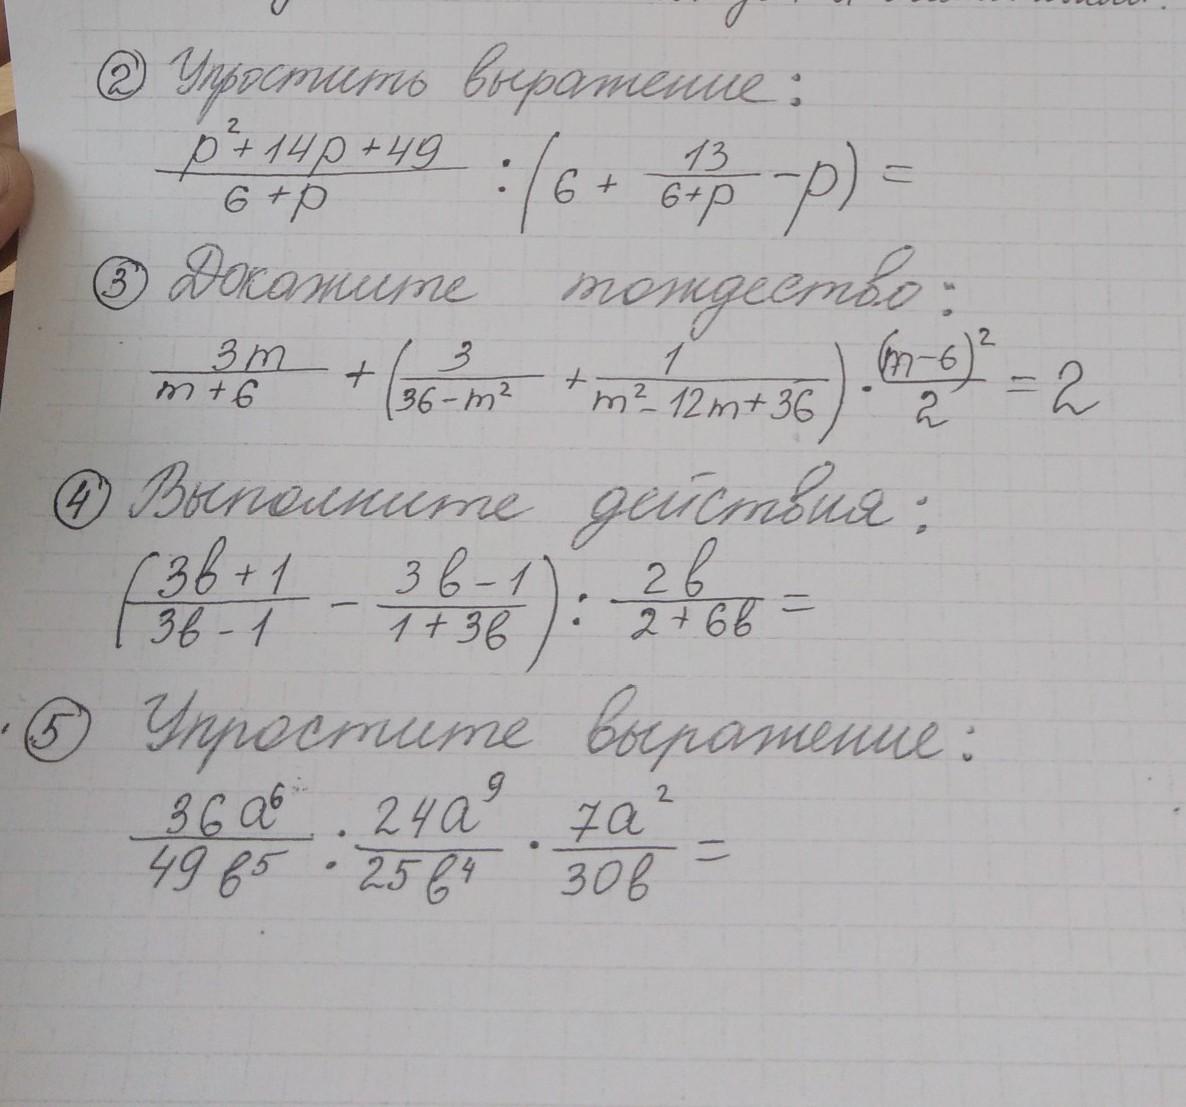 ② Упростить выражение:
(p²+14p+49)/(6+p) : (6 + 13/(6+p) - p) =
③ Докажите тождество:
3m/(m+6) + (3/(36-m²) + 1/(m²-12m+36)) · (m-6)²/2 = 2
④ Выполните действия:
((3b+1)/(3b-1) - (3b-1)/(1+3b)) : 2b/(2+6b) =
⑤ Упростите выражение:
36a⁶/49b⁵ : 24a⁹/25b⁴ · 7a²/30b =